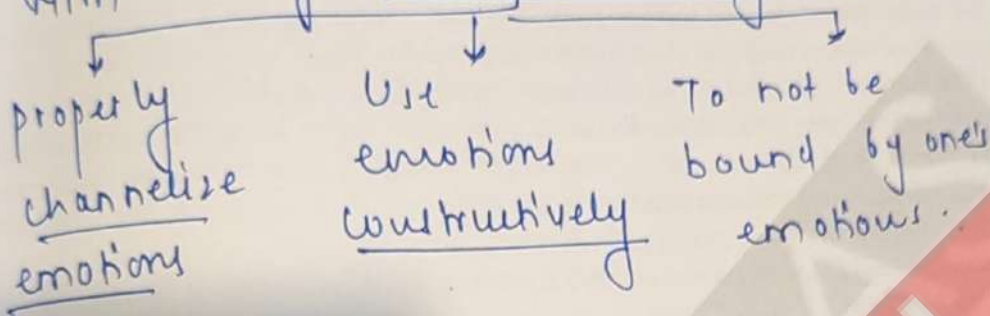 properly
channelize
emotions
Use
emotions
constructively
To not be
bound by one's
emotions.